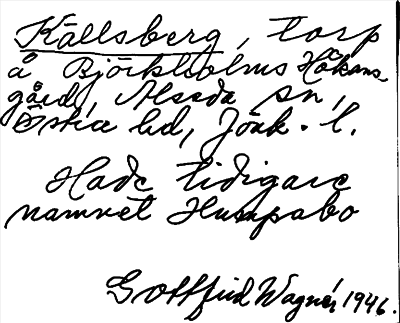 Källsberg, torp
å Björkholms Håkans-
gård, Alseda sn,
Östra hd, Jönk. l.
Hade tidigare
namnet Humpabo
Gottfrid Wagnér, 1946.